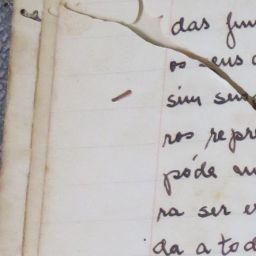 das fun
os seus
sim sem
ros repre
póde
ra ser
da a tod